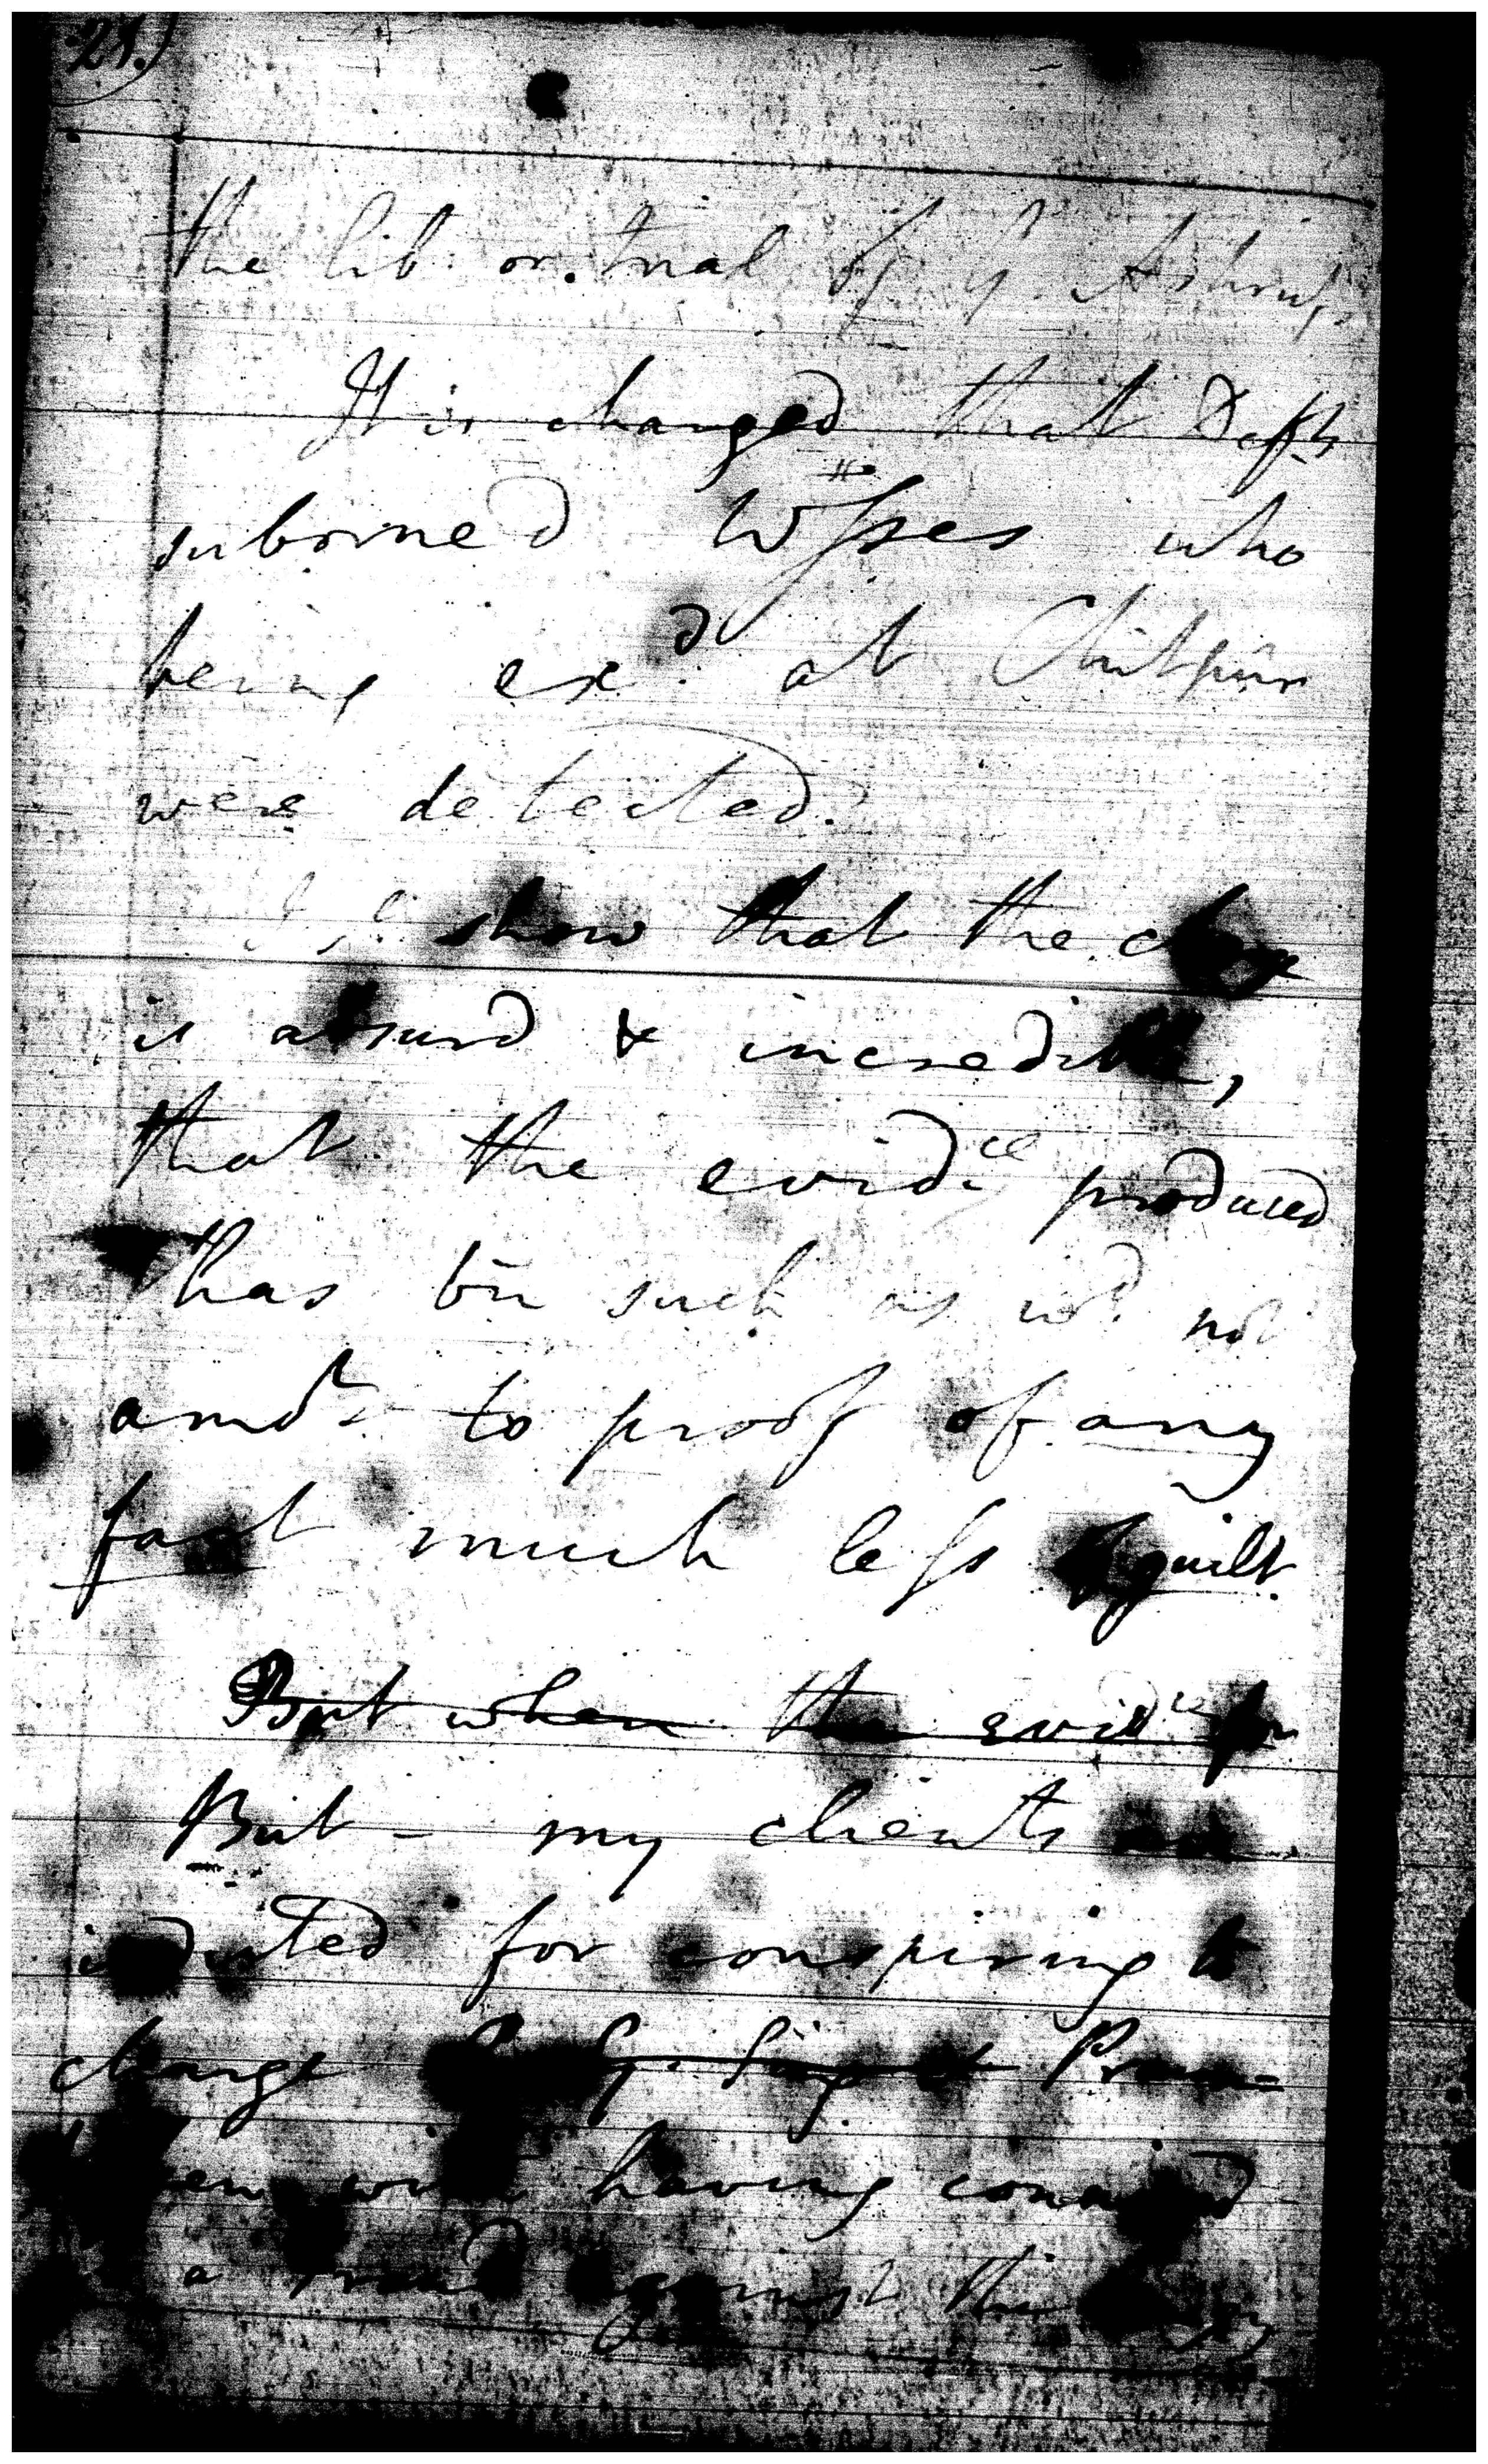 28.)
the lib. or trial of G. Ashruf,
It is charged that Defts
suborned Wſses who
being exd. at Chitpûr
were detected.
show that the charge
is absurd & incredible,
that the evidce produced
has bīn such as wd. not
amot. to proof of any
fact much leſs of guilt.
But when the evidce for
But - my clients are
indicted for conspiring to
charge
with having committed
a fraud against the